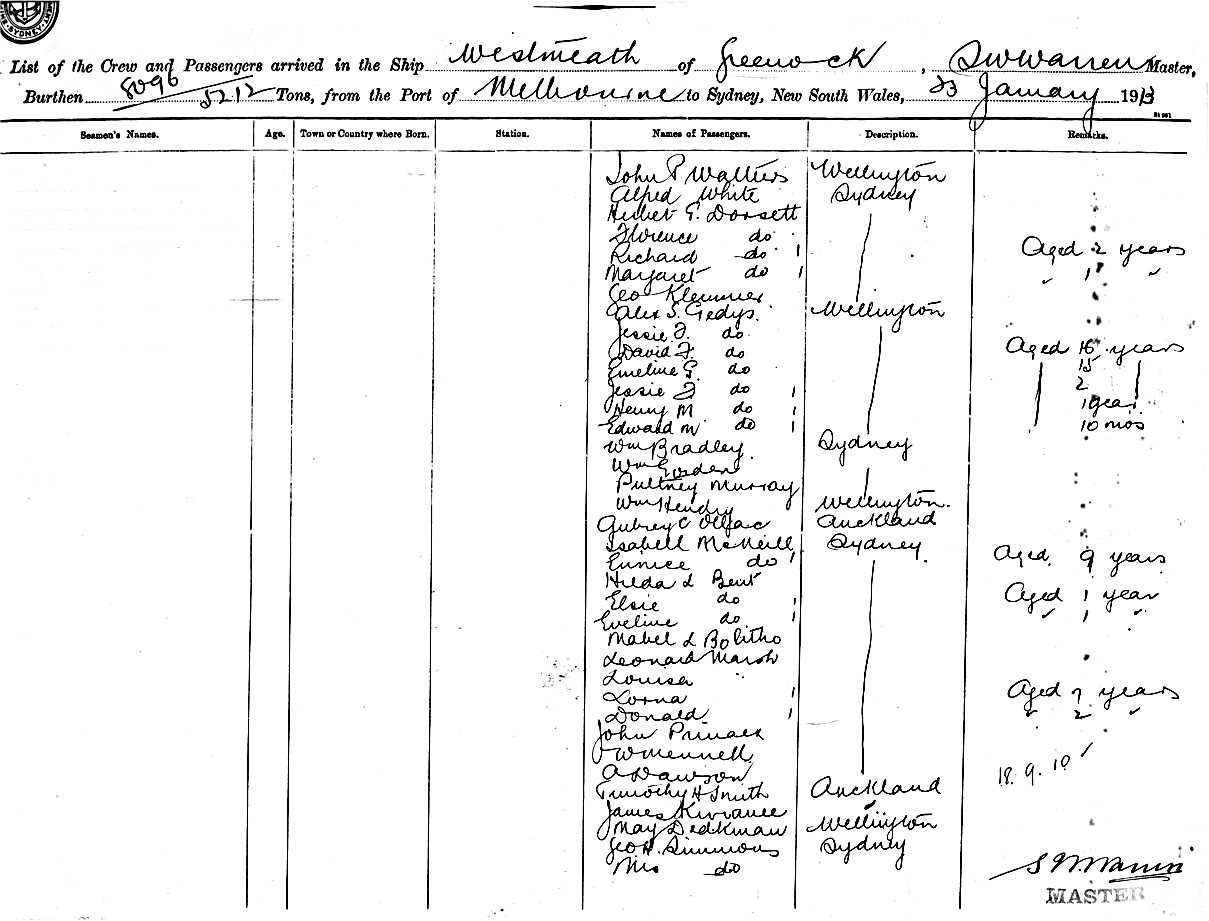 SYDNEY
List of the Crew and Passengers arrived in the Ship Westmeath of Greenock, S W Warren Master,
Burthen 8096 5212 Tons, from the Port of Melbourne to Sydney, New South Wales, 23 January 1913
Seamen's Names. Age. Town or Country where Born. Station. Names of Passengers. Description. Remarks.
John P Walters Wellington
Alfred White Sydney
Herbert E. Dorsett
Florence do
Richard do 1 Aged 2 years
Margaret do 1 " 1 "
Geo Klemmer
Alex S. Gedys. Wellington
Jessie F. do
David F. do Aged 16 years
Emeline G. do 15
Jessie F do 1 2
Henry M do 1 1 year
Edward M do 1 10 mos
Wm Bradley Sydney
Wm
Pultney Murray
Wm Hendry Wellington.
Aubrey C Auckland
Isabell McNeill Sydney
Eunice do 1 Aged 9 years
Hilda L Bent
Elsie do 1 Aged 1 year
Eveline do 1 " 1 "
Mabel L Bolitho
Leonard Marsh
Louisa "
Lorna 1 Aged 7 years
Donald 1 " 2 "
John
W Mennell
A Dawson 18.9.10
Timothy H Smith Auckland
James
May Dedkman Wellington
Geo H. Simmons Sydney
Mrs do
S W Warren
MASTER